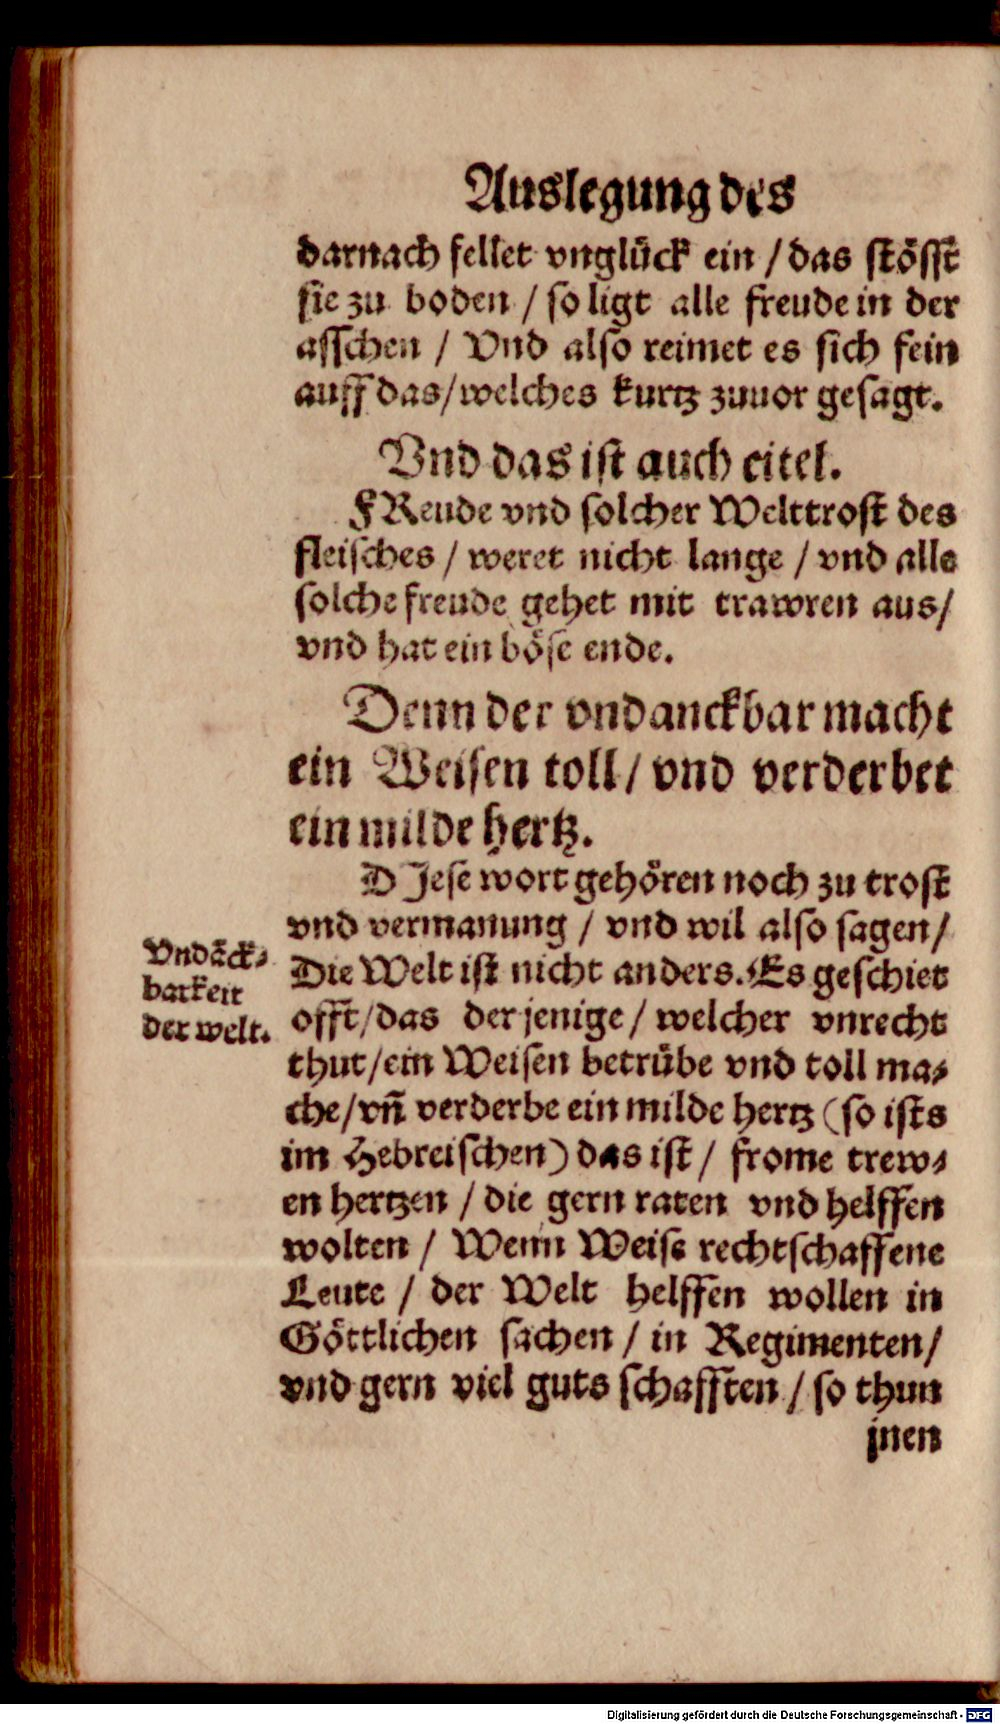 Auslegung des
darnach fellet vnglück ein / das stösst
sie zu boden / so ligt alle freude in der
asschen / Vnd also reimet es sich fein
auff das / welches kurtz zuuor gesagt.
Vnd das ist auch eitel.
FReude vnd solcher Welttrost des
fleisches / weret nicht lange / vnd alle
solche freude gehet mit trawren aus /
vnd hat ein böse ende.
Denn der vndanckbar macht
ein Weisen toll / vnd verderbet
ein milde hertz.
DJese wort gehören noch zu trost
vnd vermanung / vnd wil also sagen /
Die Welt ist nicht anders. Es geschiet
offt / das der jenige / welcher vnrecht
thut / ein Weisen betrübe vnd toll ma⸗
che / vñ verderbe ein milde hertz (so ists
im Hebreischen) das ist / frome trew⸗
en hertzen / die gern raten vnd helffen
wolten / Wenn Weise rechtschaffene
Leute / der Welt helffen wollen in
Göttlichen sachen / in Regimenten /
vnd gern viel guts schafften / so thun
jnen
Vndãck⸗
barkeit
der welt.
Digitalisierung gefördert durch die Deutsche Forschungsgemeinschaft - DFG